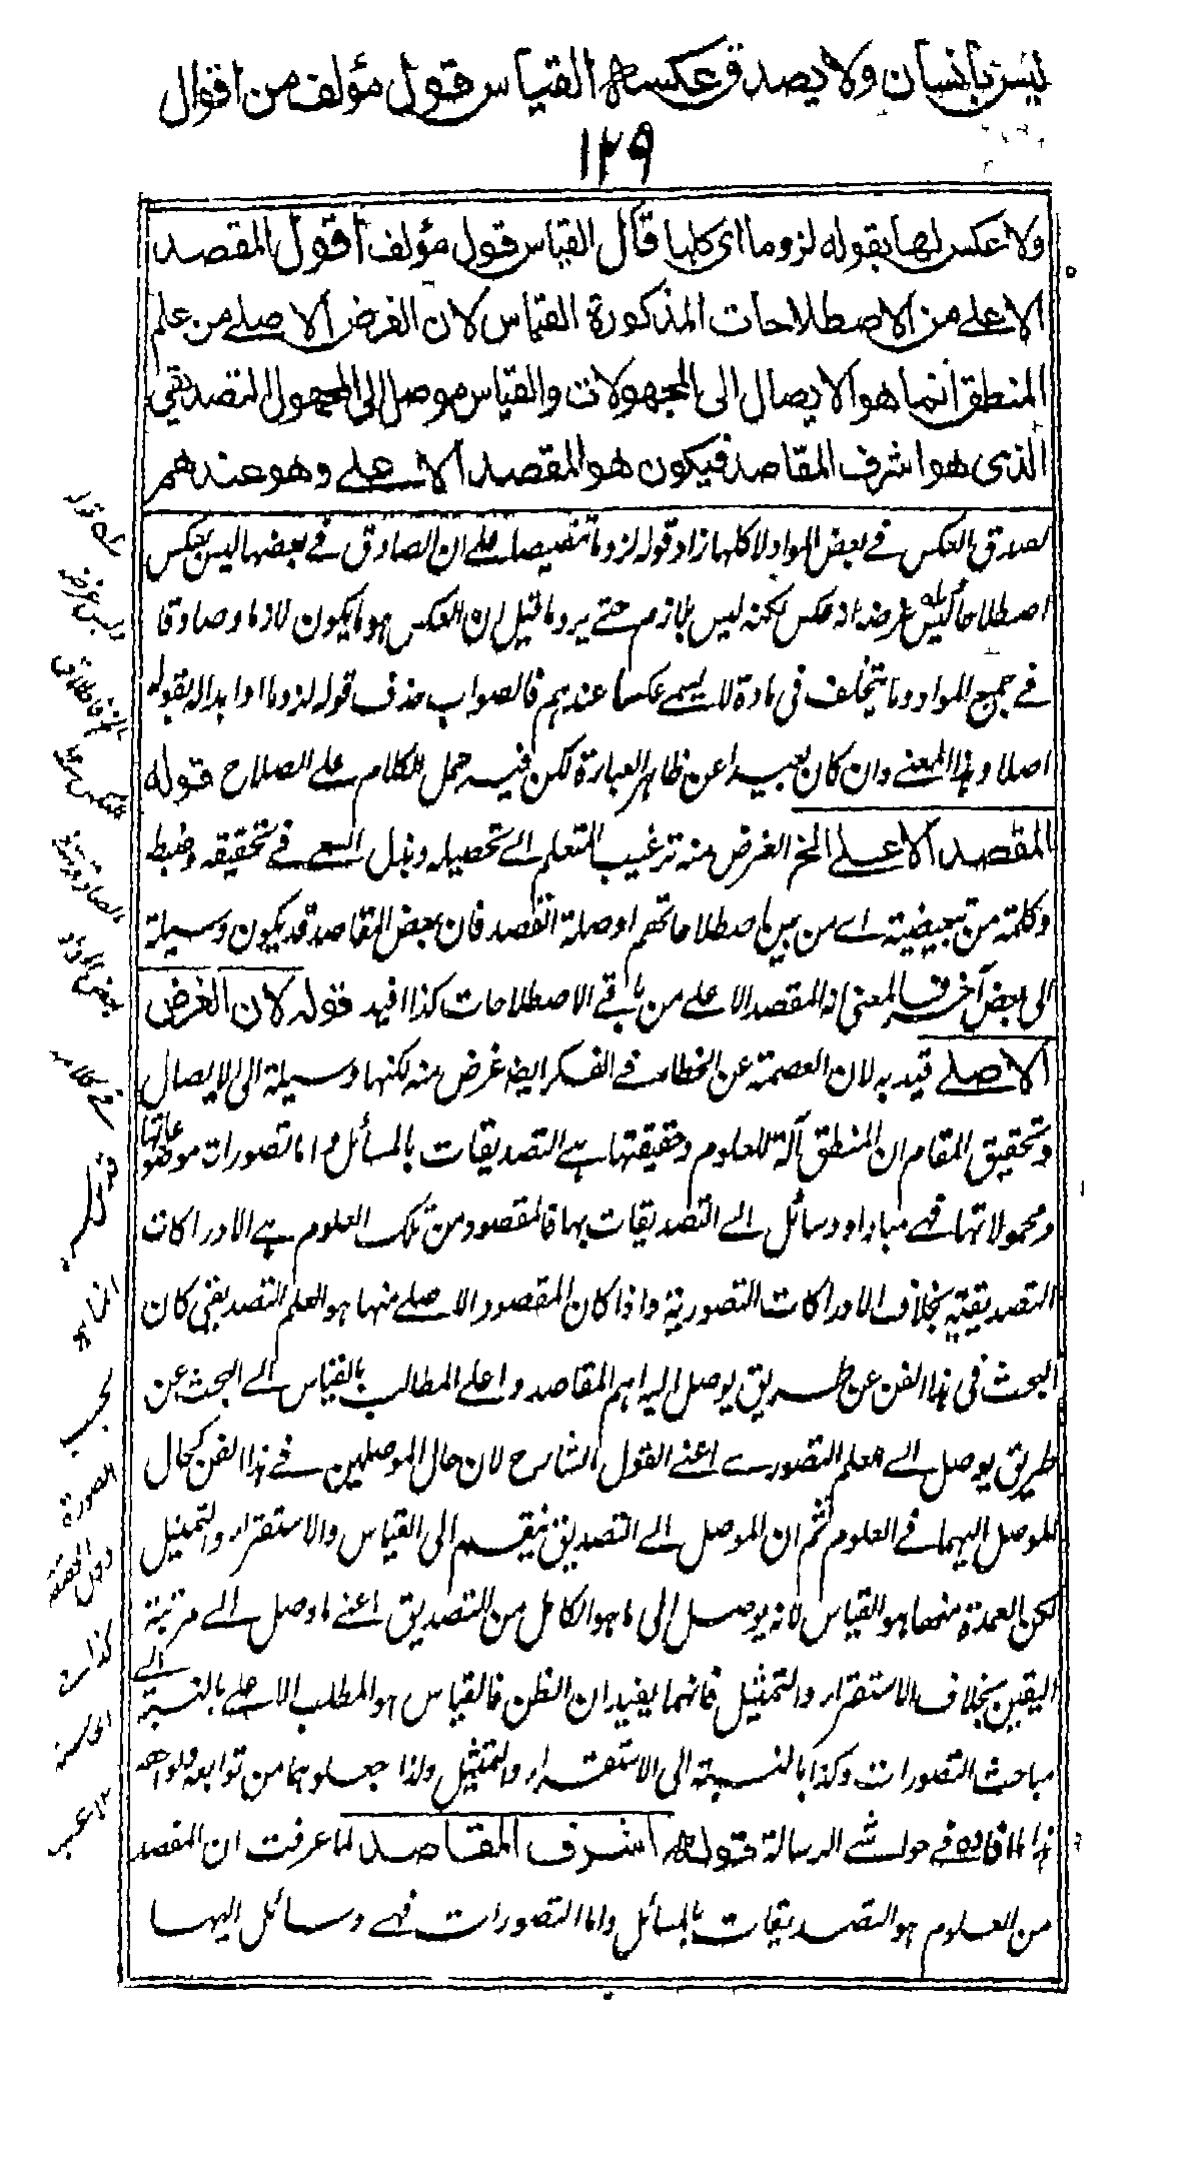 ليس بانسان ولا يصدق عكسه القياس قول مؤلف من اقوال
١٢٩
ولا عكس لها بقوله لزوما اى كليا قال القياس قول مؤلف اقول المقصد
الاعلے من الاصطلاحات المذكورة القياس لان الغرض الاصلے من علم
المنطق انما هو الايصال الى المجهولات والقياس موصل الى المجهول التصديقي
الذى هو اشرف المقاصد فيكون هو المقصد الاعلے وهو عندهم
لصدق العكس فے بعض المواد لا كلها زاد قوله لزوما تنصيصا علے ان الصادق فے بعضها ليس بعكس
اصطلاحا فليس غرضه انه عكس لكنه ليس بلازم حتے يرد ما قيل ان العكس هو ما يكون لازما وصادقا
فے جميع المواد وما يتخلف فى مادة لا يسمے عكسا عندهم فالصواب حذف قوله لزوما او ابداله بقوله
اصلا وهذا المعنے وان كان بعيدا عن ظاهر العبارة لكن فيه حمل للكلام علے الصلاح قوله
المقصد الاعلے الخ الغرض منه ترغيب المتعلم الے تحصيله وبذل السعے فے تحقيقه وضبط
وكلمة من تبعيضية اے من بين اصطلاحاتهم او صلة القصد فان بعض المقاصد قد يكون وسيلة
الى بعض آخر فالمعنى انه المقصد الاعلے من باقے الاصطلاحات كذا افيد قوله لان الغرض
الاصلے قيد به لان العصمة عن الخطاء فے الفكر ايضا غرض منه لكنها وسيلة الى الايصال
وتحقيق المقام ان المنطق آلة للعلوم وحقيقتها هے التصديقات بالمسائل واما تصورات موضوعاتها
ومحمولاتها فهے مباد او وسائل الے التصديقات بها فالمقصود من تلك العلوم هے الادراكات
التصديقية بخلاف الادراكات التصورية واذا كان المقصود الاصلے منها هو العلم التصديقي كان
البحث فى هذا الفن عن طريق يوصل اليه اهم المقاصد واعلے المطالب بالقياس الے البحث عن
طريق يوصل الے العلم التصورے اعنے القول الشارح لان حال الموصلين فے هذا الفن كحال
الموصل اليهما فے العلوم ثم ان الموصل الے التصديق ينقسم الى القياس والاستقراء والتمثيل
لكن العمدة منها هو القياس لانه يوصل الى ما هو الكامل من التصديق اعنے ما وصل الے مرتبة
اليقين بخلاف الاستقراء والتمثيل فانهما يفيدان الظن فالقياس هو المطلب الاعلے بالنسبة الے
مباحث التصورات وكذا بالنسبة الى الاستقراء والتمثيل ولذا جعلوهما من توابعه ولواحقه
هذا ما افاده فے حواشے الرسالة قوله اشرف المقاصد لما عرفت ان المقصد
من العلوم هو التصديقات بالمسائل واما التصورات فهے وسائل اليها
قوله
انما هو
بحسب
الصورة